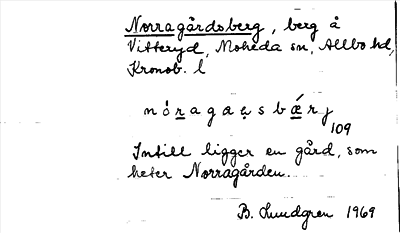 Norragårdsberg, berg å
Vitteryd, Moheda sn, Allbo hd,
Kronob. l
nóragaȩsbǽrj
109
Intill ligger en gård, som
heter Norragården.
B. Lundgren 1969